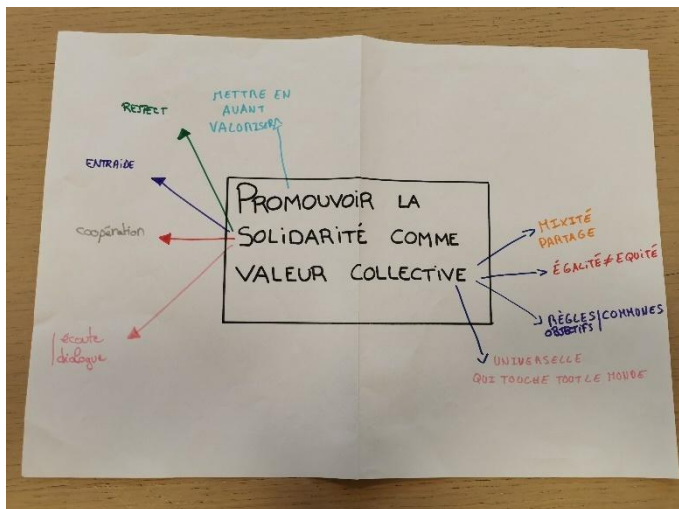 METTRE EN
AVANT
VALORISER
RESPECT
ENTRAIDE
coopération
écoute
dialogue
PROMOUVOIR LA
SOLIDARITÉ COMME
VALEUR COLLECTIVE
MIXITÉ
PARTAGE
ÉGALITÉ ≠ EQUITÉ
RÈGLES/COMMUNES
OBJECTIFS
UNIVERSELLE
QUI TOUCHE TOUT LE MONDE